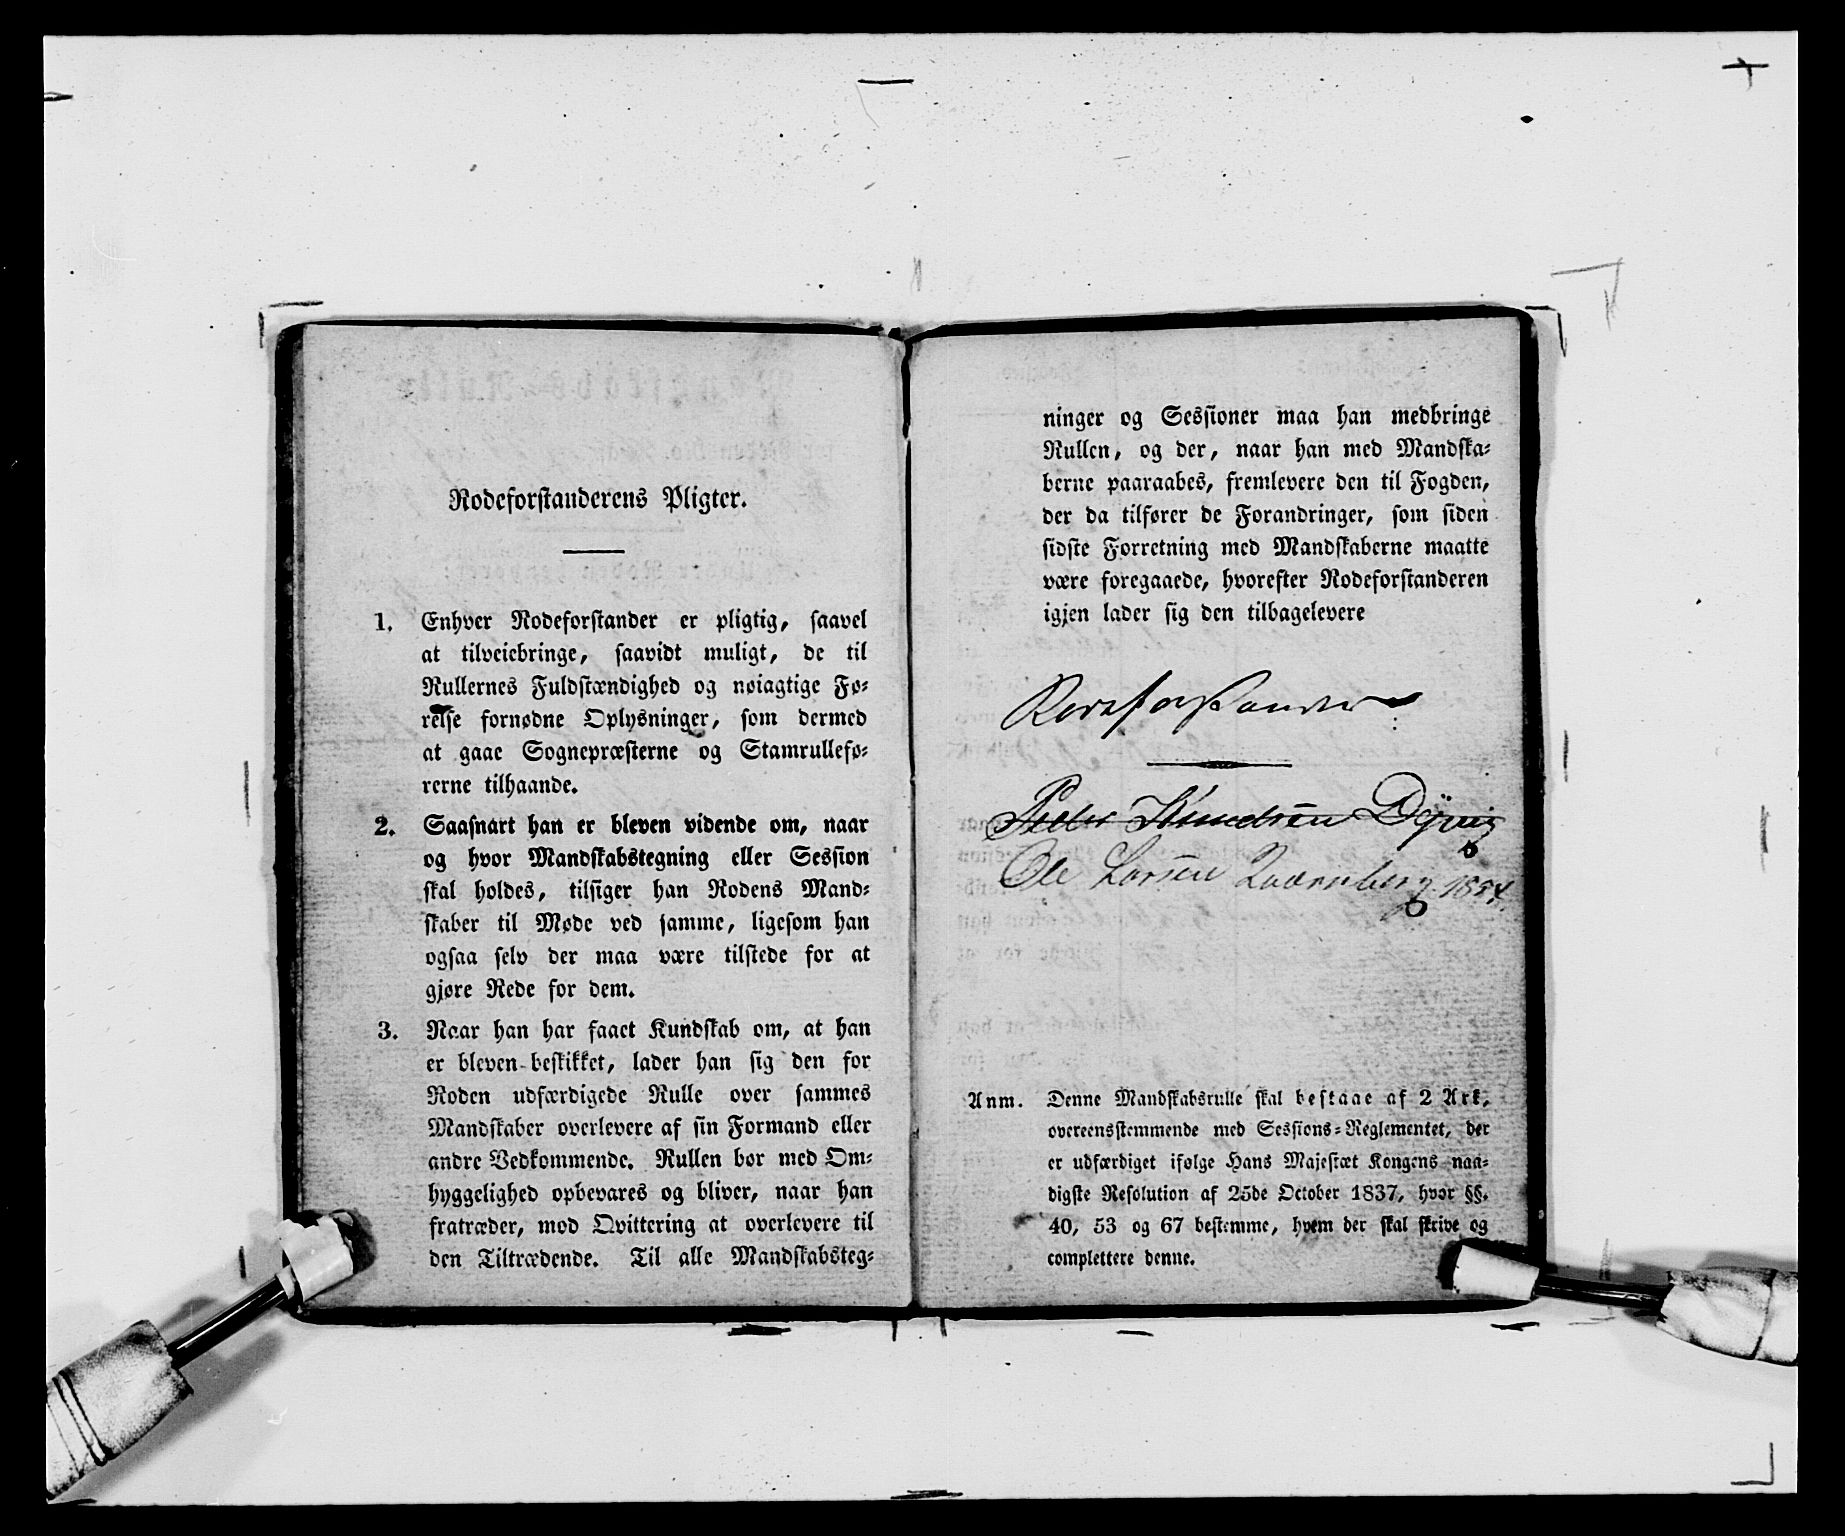 Rodeforstanderens Pligter.
1. Enhver Rodeforstander er pligtig, saavel
at tilveiebringe, saavidt muligt, de til
Rullernes Fuldstændighed og nøiagtige Fø-
relse fornødne Oplysninger, som dermed
at gaae Sognepræsterne og Stamrullefø-
rerne tilhaande.
2. Saasnart han er bleven vidende om, naar
og hvor Mandskabstegning eller Session
skal holdes, tilsiger han Rodens Mand-
skaber til Møde ved samme, ligesom han
ogsaa selv der maa være tilstede for at
gjøre Rede for dem.
3. Naar han har faaet Kundskab om, at han
er bleven beskikket, lader han sig den for
Roden udfærdigede Rulle over sammes
Mandskaber overlevere af sin Formand eller
andre Vedkommende. Rullen bør med Om-
hyggelighed opbevares og bliver, naar han
fratræder, mod Qvittering at overlevere til
den Tiltrædende. Til alle Mandskabsteg-
ninger og Sessioner maa han medbringe
Rullen, og der, naar han med Mandska-
berne paaraabes, fremlevere den til Fogden,
der da tilfører de Forandringer, som siden
sidste Forretning med Mandskaberne maatte
være foregaaede, hvorefter Rodeforstanderen
igjen lader sig den tilbagelevere
Rodeforstander
Peder Knudsen
Ole Larsen
Anm. Denne Mandskabsrulle skal bestaae af 2 Ark,
overeensstemmende med Sessions-Reglementet, der
er udfærdiget ifølge Hans Majestæt Kongens naa-
digste Resolution af 25de October 1837, hvor §§.
40, 53 og 67 bestemme, hvem der skal skrive og
complettere denne.